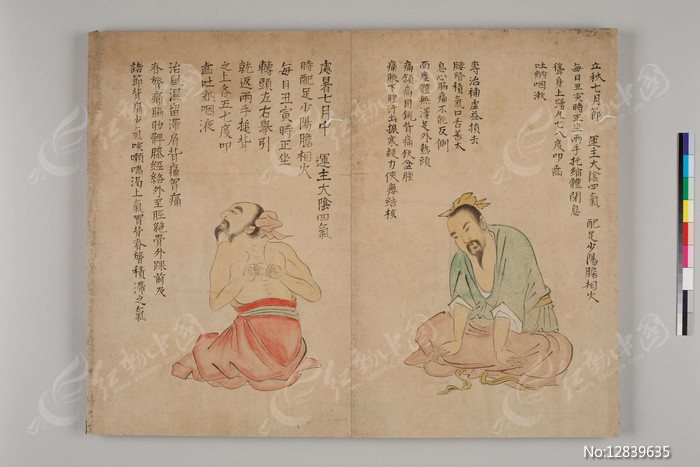 立秋七月節 運主大陰四氣 配足少陽膽相火
每日丑寅時正坐兩手托縮體閉息
聳身上踴凡七八度叩齒
吐納咽漱
專治補虛益損去
腰腎積氣口苦善太
息心脇痛不能反側
面塵體無澤足外熱頭
痛頷痛目銳眥痛缺盆腫
痛腋下腫汗出振寒疑力俠癭結核
處暑七月中 運主大陰四氣
時配足少陽膽相火
每日丑寅時正坐
轉頭左右舉引
就返兩手搥背
之上各五七度叩
齒吐納咽液
治風濕留滯肩背痛胷痛
脊膂痛脇肋髀膝經絡外至脛絕骨外踝前及
諸節皆痛少氣咳嗽喘渴上氣胷背脊膂積滯之氣
红动中国
No:12839635